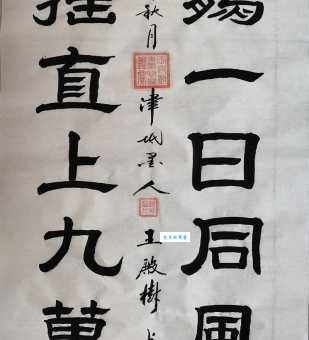 一日同風
秋月 津城墨人 王殿樹
直上九萬